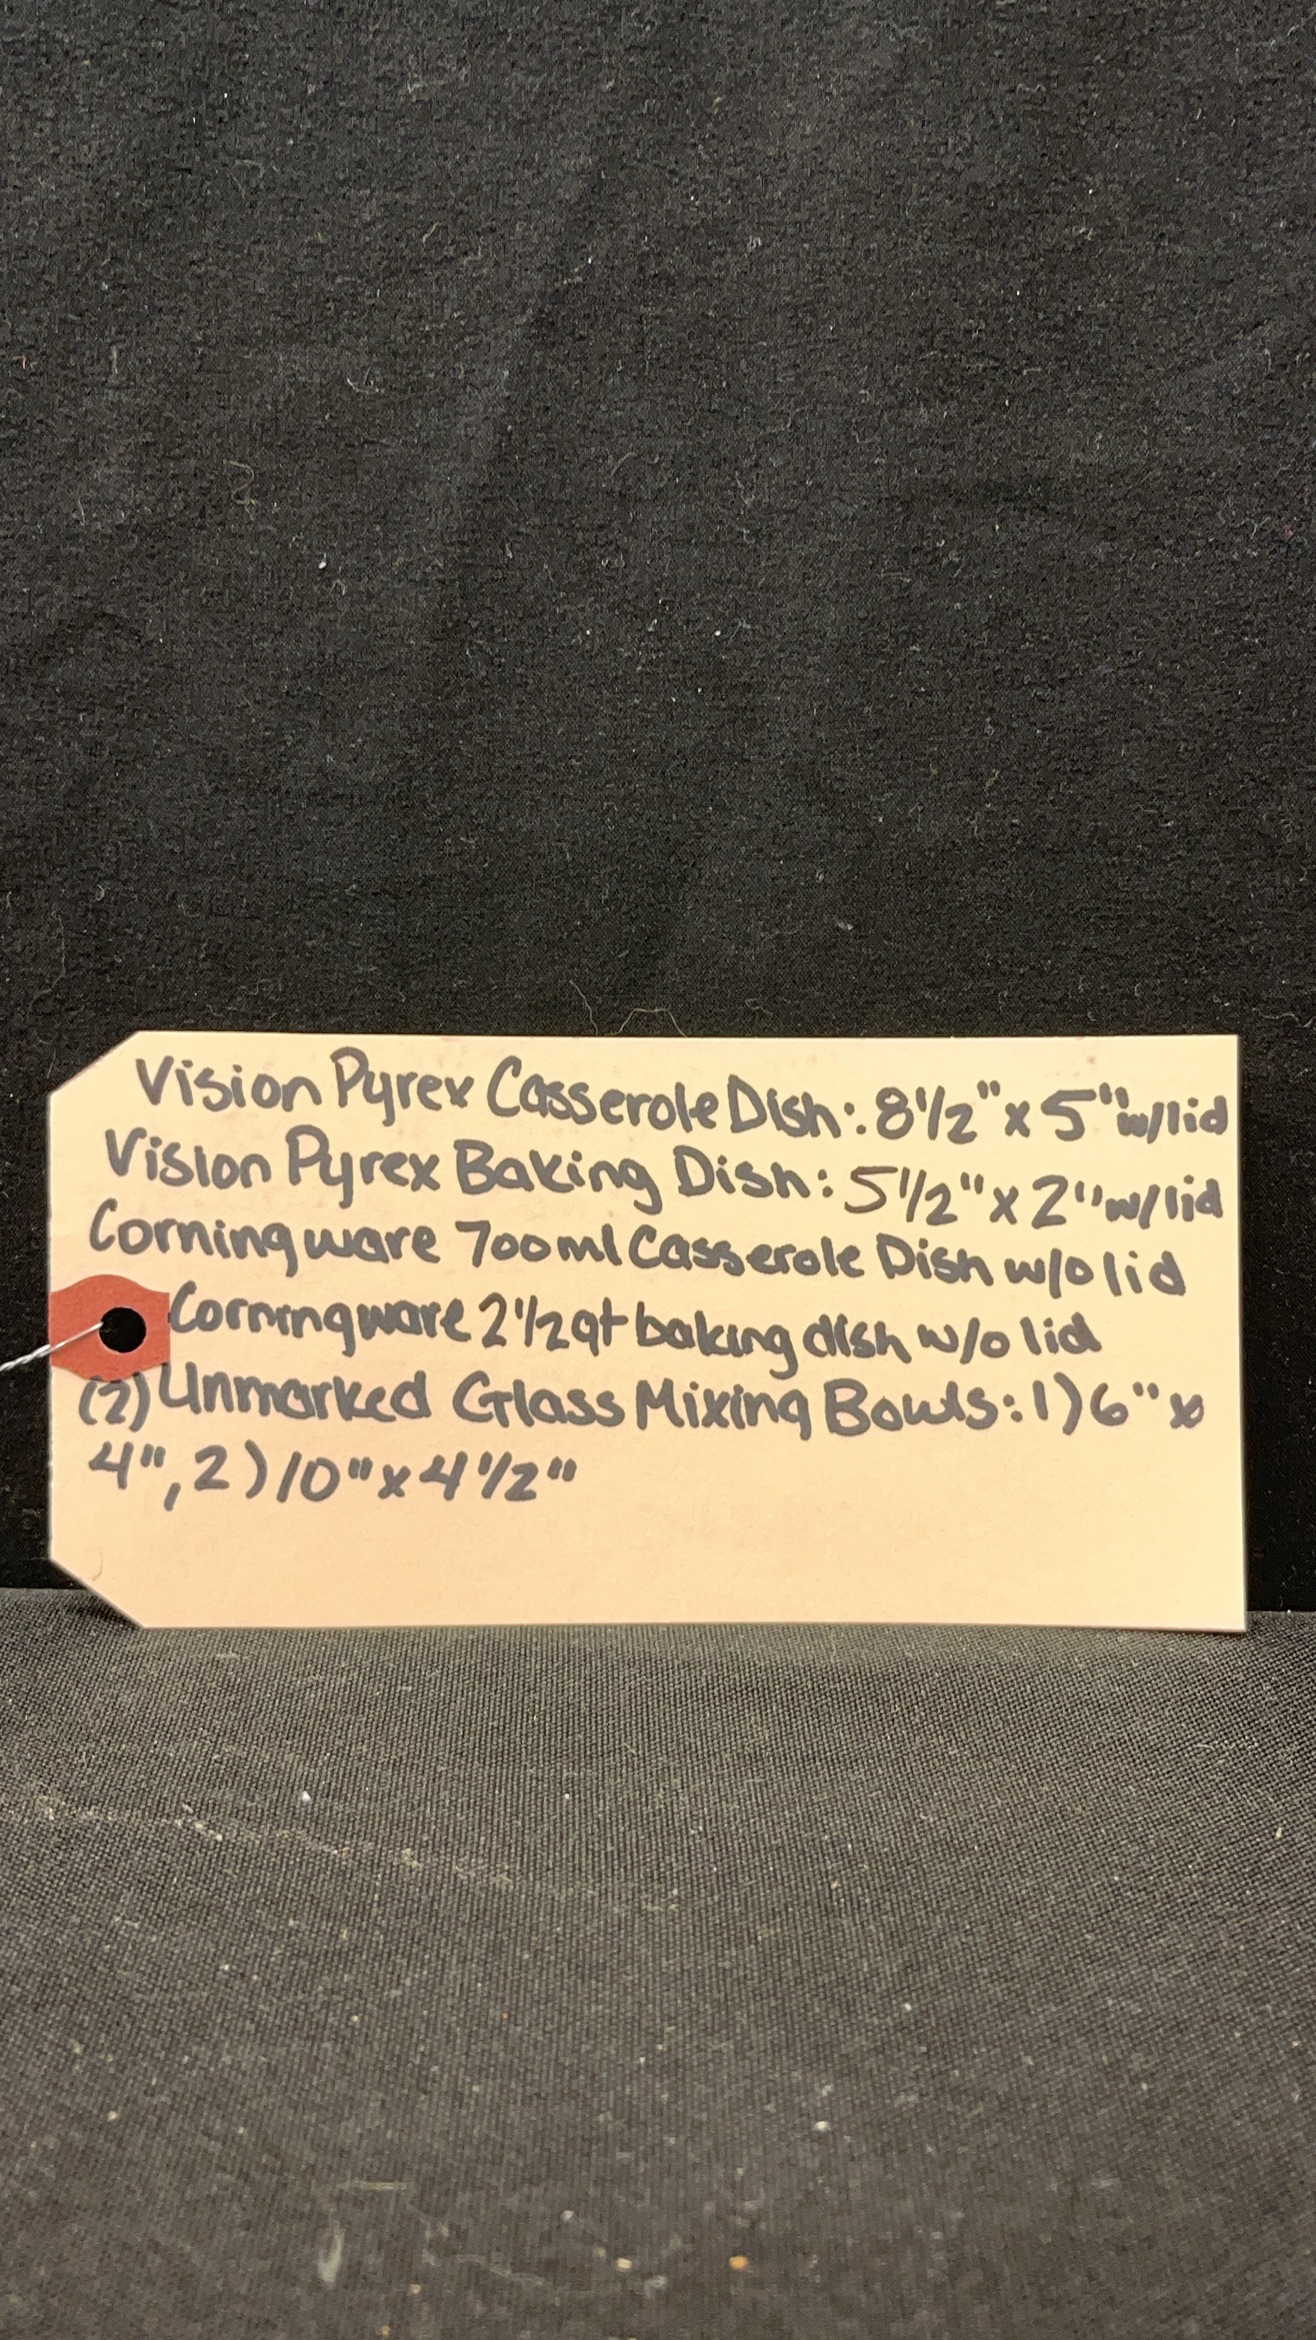 Vision Pyrex Casserole Dish: 8 1/2" x 5" w/lid
Vision Pyrex Baking Dish: 5 1/2" x 2" w/lid
Corningware 700ml Casserole Dish w/o lid
Corningware 2 1/2 qt baking dish w/o lid
(2) Unmarked Glass Mixing Bowls: 1) 6" x
4", 2) 10" x 4 1/2"